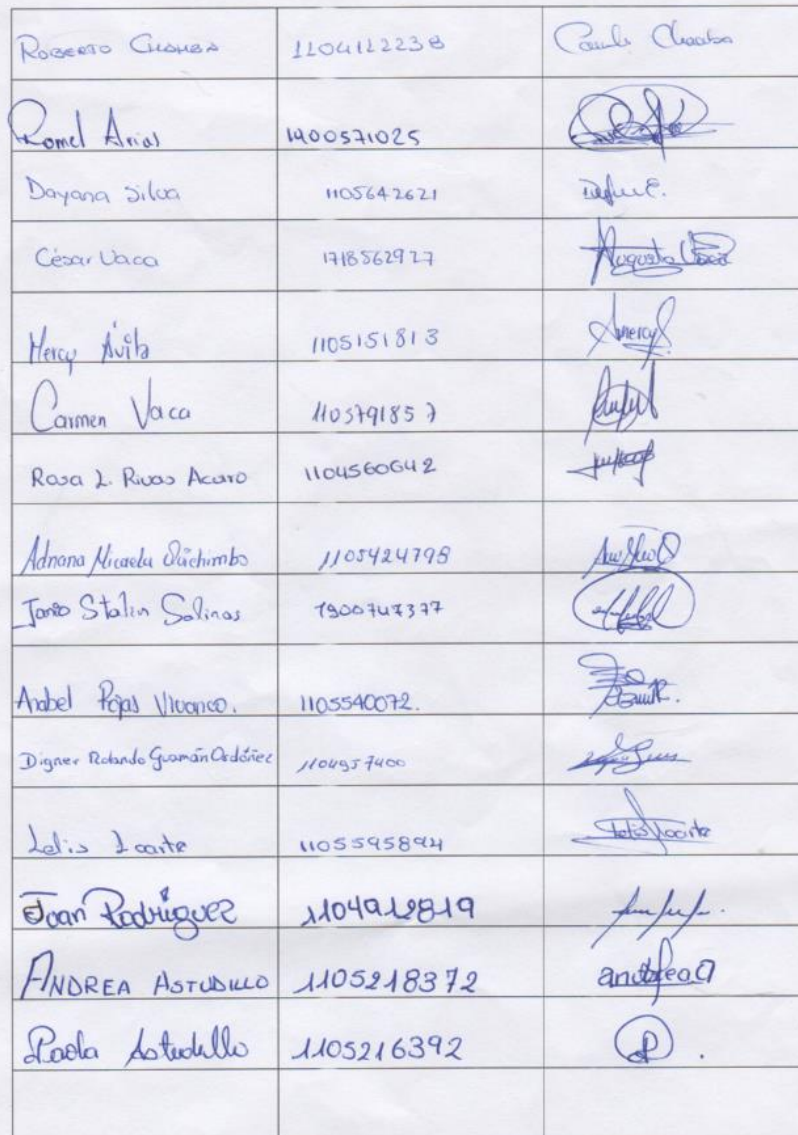 ROBERTO CHAMBA 1104112238
Romel Arias 1400571025
Dayana Silva 1105642621
César Vaca 1718562927
Augusto Vaca
Mercy Ávila 1105151813
Mercy
Carmen Vaca 1105791857
Rosa L. Rivas Acaro 1104560642
Adriana Micaela Quichimbo 1105424798
Janio Stalin Salinas 1900747377
Anabel Rojas Vivanco. 1105540072.
Digner Rolando Guamán Ordóñez 1104957400
Lelis Loarte 1105595894
Lelis Loarte
Joan Rodríguez 1104912819
ANDREA ASTUDILLO 1105218372 andrea
Paola Astudillo 1105216392